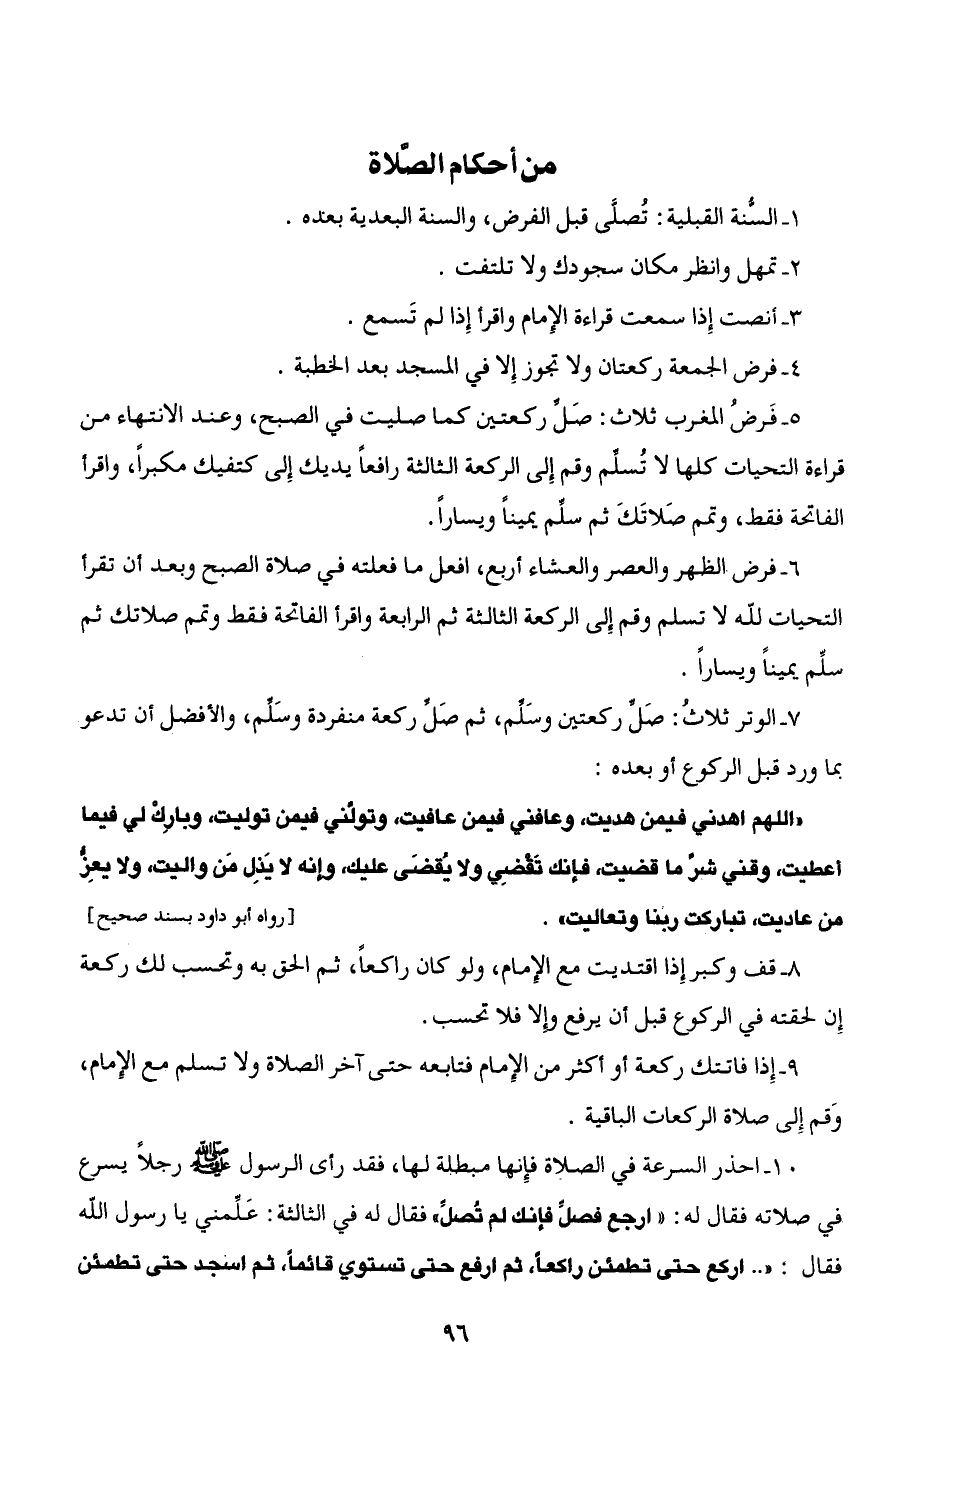 من أحكام الصَّلاة
١ـ السُّنة القبلية: تُصلَّى قبل الفرض، والسنة البعدية بعده .
٢ـ تمهل وانظر مكان سجودك ولا تلتفت .
٣ـ أنصت إذا سمعت قراءة الإمام واقرأ إذا لم تَسمع .
٤ـ فرض الجمعة ركعتان ولا تجوز إلا في المسجد بعد الخطبة .
٥ـ فَرضُ المغرب ثلاث: صَلِّ ركعتين كما صليت في الصبح، وعند الانتهاء من
قراءة التحيات كلها لا تُسلِّم وقم إلى الركعة الثالثة رافعاً يديك إلى كتفيك مكبراً، واقرأ
الفاتحة فقط، وتمم صَلاتَكَ ثم سلِّم يميناً ويساراً.
٦ـ فرض الظهر والعصر والعشاء أربع، افعل ما فعلته في صلاة الصبح وبعد أن تقرأ
التحيات لله لا تسلم وقم إلى الركعة الثالثة ثم الرابعة واقرأ الفاتحة فقط وتمم صلاتك ثم
سلِّم يميناً ويساراً .
٧ـ الوتر ثلاثُ: صَلِّ ركعتين وسَلِّم، ثم صَلِّ ركعة منفردة وسَلِّم، والأفضل أن تدعو
بما ورد قبل الركوع أو بعده :
«اللهم اهدني فيمن هديت، وعافني فيمن عافيت، وتولَّني فيمن توليت، وبارِكْ لي فيما
أعطيت، وقني شرَّ ما قضيت، فإنك تَقْضي ولا يُقضَى عليك، وإنه لا يَذِل مَن واليت، ولا يعزُّ
من عاديت، تباركت ربنا وتعاليت» . [رواه أبو داود بسند صحيح]
٨ـ قف وكبر إذا اقتديت مع الإمام، ولو كان راكعاً، ثم الحق به وتحسب لك ركعة
إن لحقته في الركوع قبل أن يرفع وإلا فلا تحسب.
٩ـ إذا فاتتك ركعة أو أكثر من الإمام فتابعه حتى آخر الصلاة ولا تسلم مع الإمام،
وَقم إلى صلاة الركعات الباقية .
١٠ـ احذر السرعة في الصلاة فإنها مبطلة لها، فقد رأى الرسول ﷺ رجلاً يسرع
في صلاته فقال له: « ارجع فصلِّ فإنك لم تُصلِّ» فقال له في الثالثة: عَلِّمني يا رسول الله
فقال : «.. اركع حتى تطمئن راكعاً، ثم ارفع حتى تستوي قائماً، ثم اسجد حتى تطمئن
٩٦